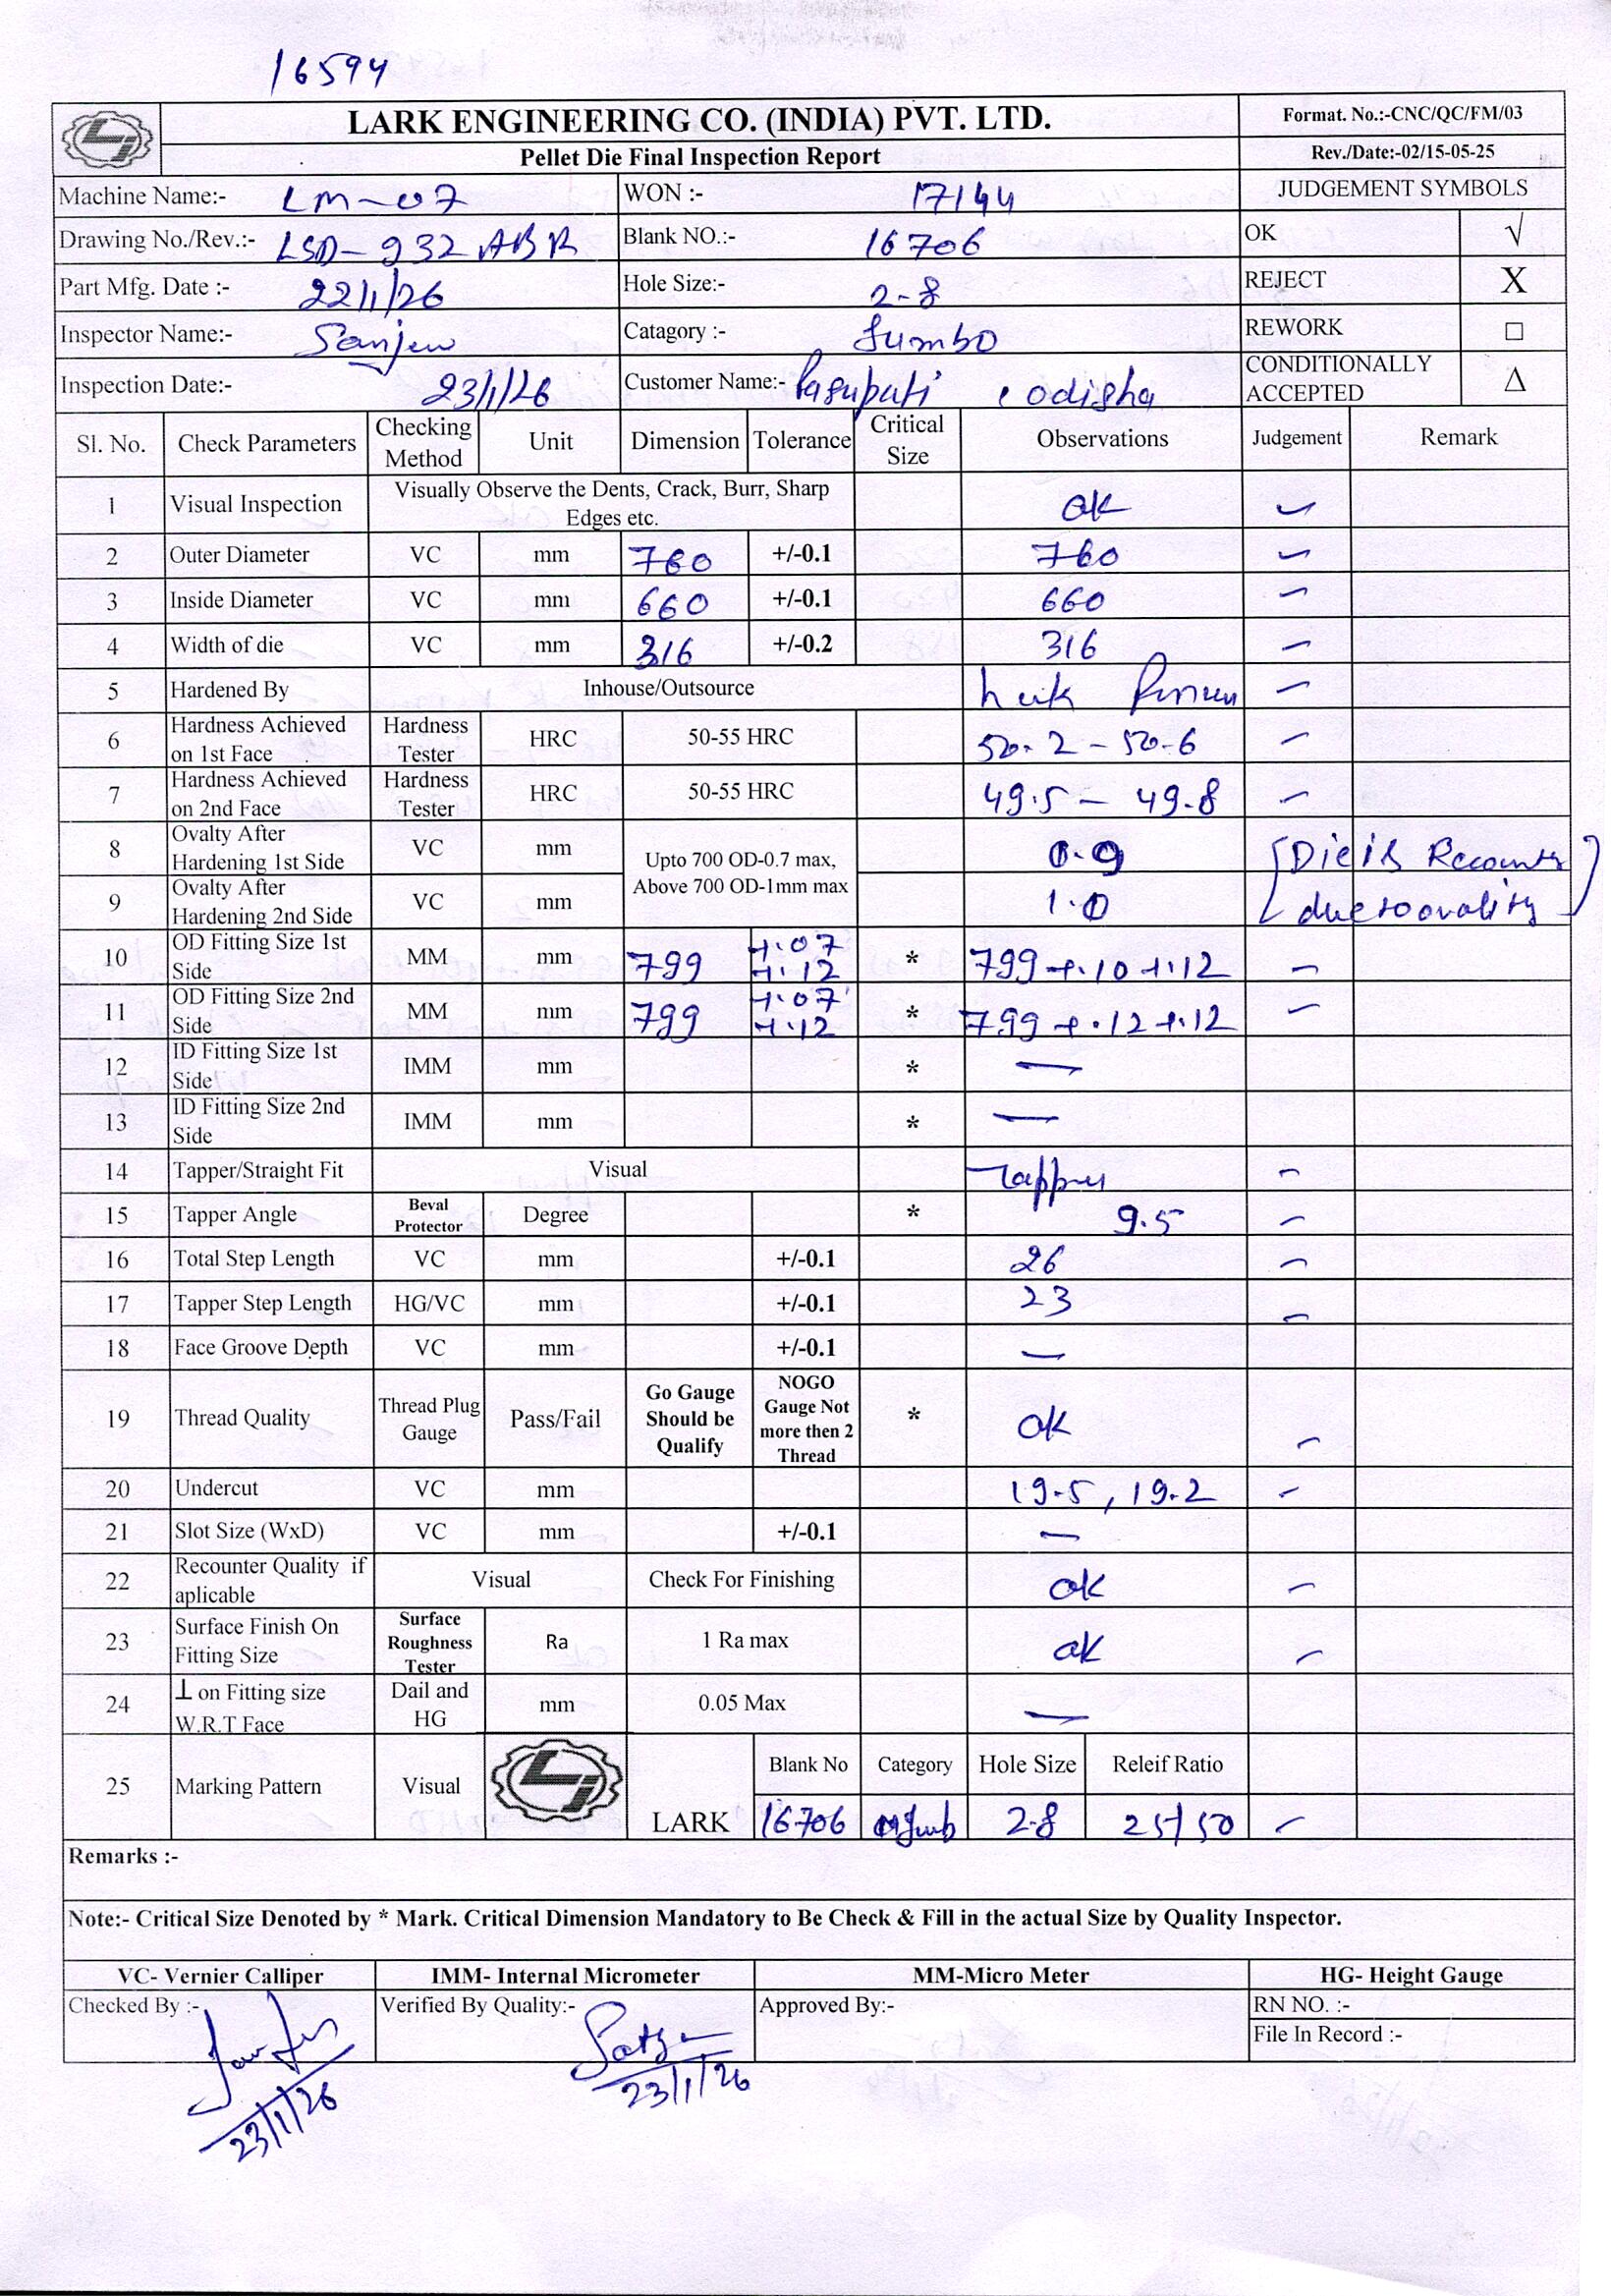 16594
LARK ENGINEERING CO. (INDIA) PVT. LTD.
Format. No.:-CNC/QC/FM/03
Pellet Die Final Inspection Report
Rev./Date:-02/15-05-25
Machine Name:- LM-07 WON :- 17144 JUDGEMENT SYMBOLS
Drawing No./Rev.:- LSD-932 ABR Blank NO.:- 16706 OK √
Part Mfg. Date :- 22/1/26 Hole Size:- 2-8 REJECT X
Inspector Name:- Sanjeev Catagory :- Jumbo REWORK □
Inspection Date:- 23/1/26 Customer Name:- Pasupati odisha CONDITIONALLY ACCEPTED Δ
Sl. No. Check Parameters Checking Method Unit Dimension Tolerance Critical Size Observations Judgement Remark
1 Visual Inspection Visually Observe the Dents, Crack, Burr, Sharp Edges etc. ok
2 Outer Diameter VC mm 760 +/-0.1 760
3 Inside Diameter VC mm 660 +/-0.1 660
4 Width of die VC mm 316 +/-0.2 316
5 Hardened By Inhouse/Outsource
6 Hardness Achieved on 1st Face Hardness Tester HRC 50-55 HRC 50.2 - 50.6
7 Hardness Achieved on 2nd Face Hardness Tester HRC 50-55 HRC 49.5 - 49.8
8 Ovalty After Hardening 1st Side VC mm Upto 700 OD-0.7 max, Above 700 OD-1mm max 0.9 Die is Recounter
9 Ovalty After Hardening 2nd Side VC mm 1.0 due to ovality
10 OD Fitting Size 1st Side MM mm 799 +.07 +.12 * 799 +.10 +.12
11 OD Fitting Size 2nd Side MM mm 799 +.07 +.12 * 799 +.12 +.12
12 ID Fitting Size 1st Side IMM mm * —
13 ID Fitting Size 2nd Side IMM mm * —
14 Tapper/Straight Fit Visual Tapper
15 Tapper Angle Beval Protector Degree * 9.5
16 Total Step Length VC mm +/-0.1 26
17 Tapper Step Length HG/VC mm +/-0.1 23
18 Face Groove Depth VC mm +/-0.1 —
19 Thread Quality Thread Plug Gauge Pass/Fail Go Gauge Should be Qualify NOGO Gauge Not more then 2 Thread * ok
20 Undercut VC mm 19.5, 19.2
21 Slot Size (WxD) VC mm +/-0.1 —
22 Recounter Quality if aplicable Visual Check For Finishing ok
23 Surface Finish On Fitting Size Surface Roughness Tester Ra 1 Ra max ok
24 ⊥ on Fitting size W.R.T Face Dail and HG mm 0.05 Max —
25 Marking Pattern Visual LARK Blank No Category Hole Size Releif Ratio
16706 2.8 25/50
Remarks :-
Note:- Critical Size Denoted by * Mark. Critical Dimension Mandatory to Be Check & Fill in the actual Size by Quality Inspector.
VC- Vernier Calliper IMM- Internal Micrometer MM-Micro Meter HG- Height Gauge
Checked By :- Verified By Quality:- Approved By:- RN NO. :-
File In Record :-
23/1/26 23/1/26